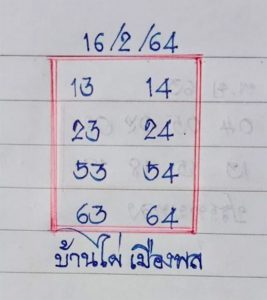 16/2/64
13 14
23 24
53 54
63 64
บ้านไผ่ เมืองพล